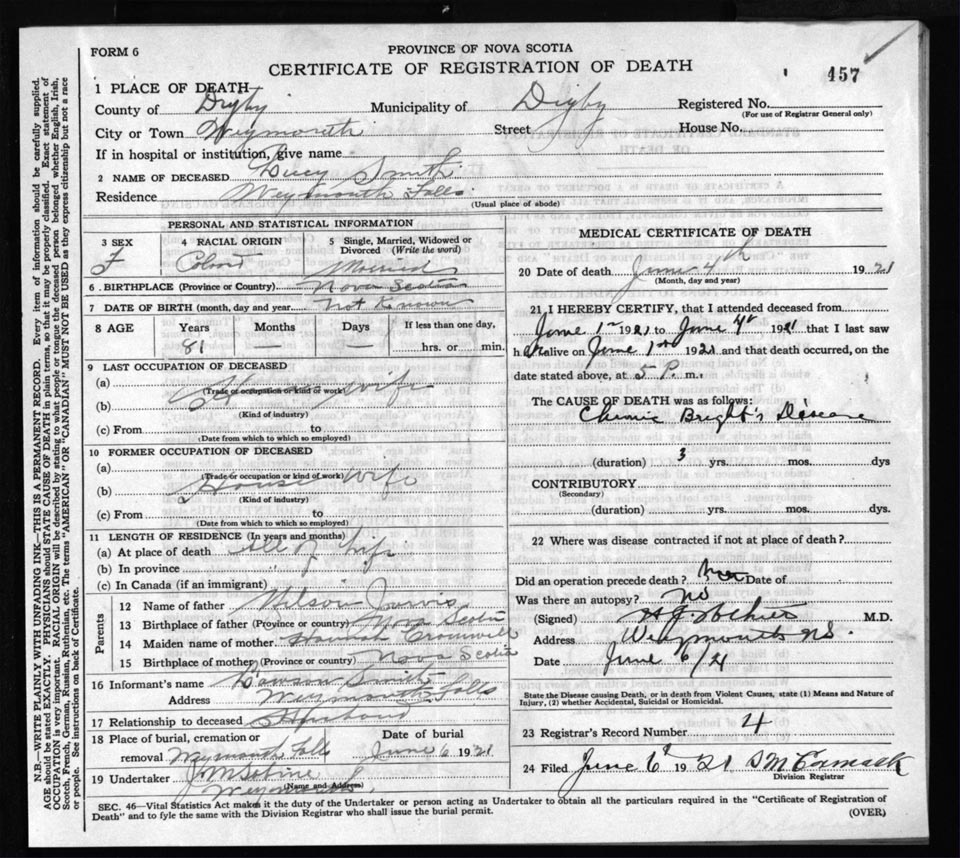 FORM 6
PROVINCE OF NOVA SCOTIA
CERTIFICATE OF REGISTRATION OF DEATH
457
1 PLACE OF DEATH
County of Digby Municipality of Digby Registered No.
(For use of Registrar General only)
City or Town Weymouth Street House No.
If in hospital or institution, give name
2 NAME OF DECEASED Lucy Smith
Residence Weymouth Falls
(Usual place of abode)
PERSONAL AND STATISTICAL INFORMATION
3 SEX 4 RACIAL ORIGIN 5 Single, Married, Widowed or Divorced (Write the word)
F Married
6 BIRTHPLACE (Province or Country) Nova Scotia
7 DATE OF BIRTH (month, day and year) Not Known
8 AGE Years Months Days If less than one day,
81 — — hrs. or min.
9 LAST OCCUPATION OF DECEASED
(a) House wife
(Trade or occupation or kind of work)
(b)
(Kind of industry)
(c) From to
(Date from which to which so employed)
10 FORMER OCCUPATION OF DECEASED
(a)
(Trade or occupation or kind of work)
(b) House wife
(Kind of industry)
(c) From to
(Date from which to which so employed)
11 LENGTH OF RESIDENCE (In years and months)
(a) At place of death All of life
(b) In province " "
(c) In Canada (if an immigrant)
Parents
12 Name of father Wilson Jarvis
13 Birthplace of father (Province or country) Nova Scotia
14 Maiden name of mother Hannah Cromwell
15 Birthplace of mother (Province or country) Nova Scotia
16 Informant's name Smith
Address Weymouth Falls
17 Relationship to deceased Husband
18 Place of burial, cremation or Date of burial
removal Weymouth Falls June 6 1921
19 Undertaker
(Name and Address)
Weymouth
MEDICAL CERTIFICATE OF DEATH
20 Date of death June 4th 1921
(Month, day and year)
21 I HEREBY CERTIFY, that I attended deceased from
June 1st 1921 to June 4th 1921 that I last saw
her alive on June 1st 1921 and that death occurred, on the
date stated above, at 5 P. m.
The CAUSE OF DEATH was as follows:
Chronic Bright's Disease
(duration) 3 yrs. mos. dys
CONTRIBUTORY
(Secondary)
(duration) yrs. mos. dys.
22 Where was disease contracted if not at place of death?
Did an operation precede death? Date of
Was there an autopsy? no
(Signed) M.D.
Address Weymouth N.S.
Date June 6/21
State the Disease causing Death, or in death from Violent Causes, state (1) Means and Nature of
Injury, (2) whether Accidental, Suicidal or Homicidal.
23 Registrar's Record Number 4
24 Filed June 6th 1921
Division Registrar
SEC. 46—Vital Statistics Act makes it the duty of the Undertaker or person acting as Undertaker to obtain all the particulars required in the "Certificate of Registration of
Death" and to fyle the same with the Division Registrar who shall issue the burial permit. (OVER)
N.B.—WRITE PLAINLY WITH UNFADING INK—THIS IS A PERMANENT RECORD. Every item of information should be carefully supplied.
AGE should be stated EXACTLY. PHYSICIANS should STATE CAUSE OF DEATH in plain terms, so that it may be properly classified. Exact statement of
OCCUPATION is very important. RACIAL ORIGIN will be described by stating to what people or tongue the deceased person belonged whether English, Irish,
Scotch, French, German, Russian, Ruthenian, etc. The terms "AMERICAN" OR "CANADIAN" MUST NOT BE USED as they express citizenship but not a race
or people. See instructions on back of Certificate.